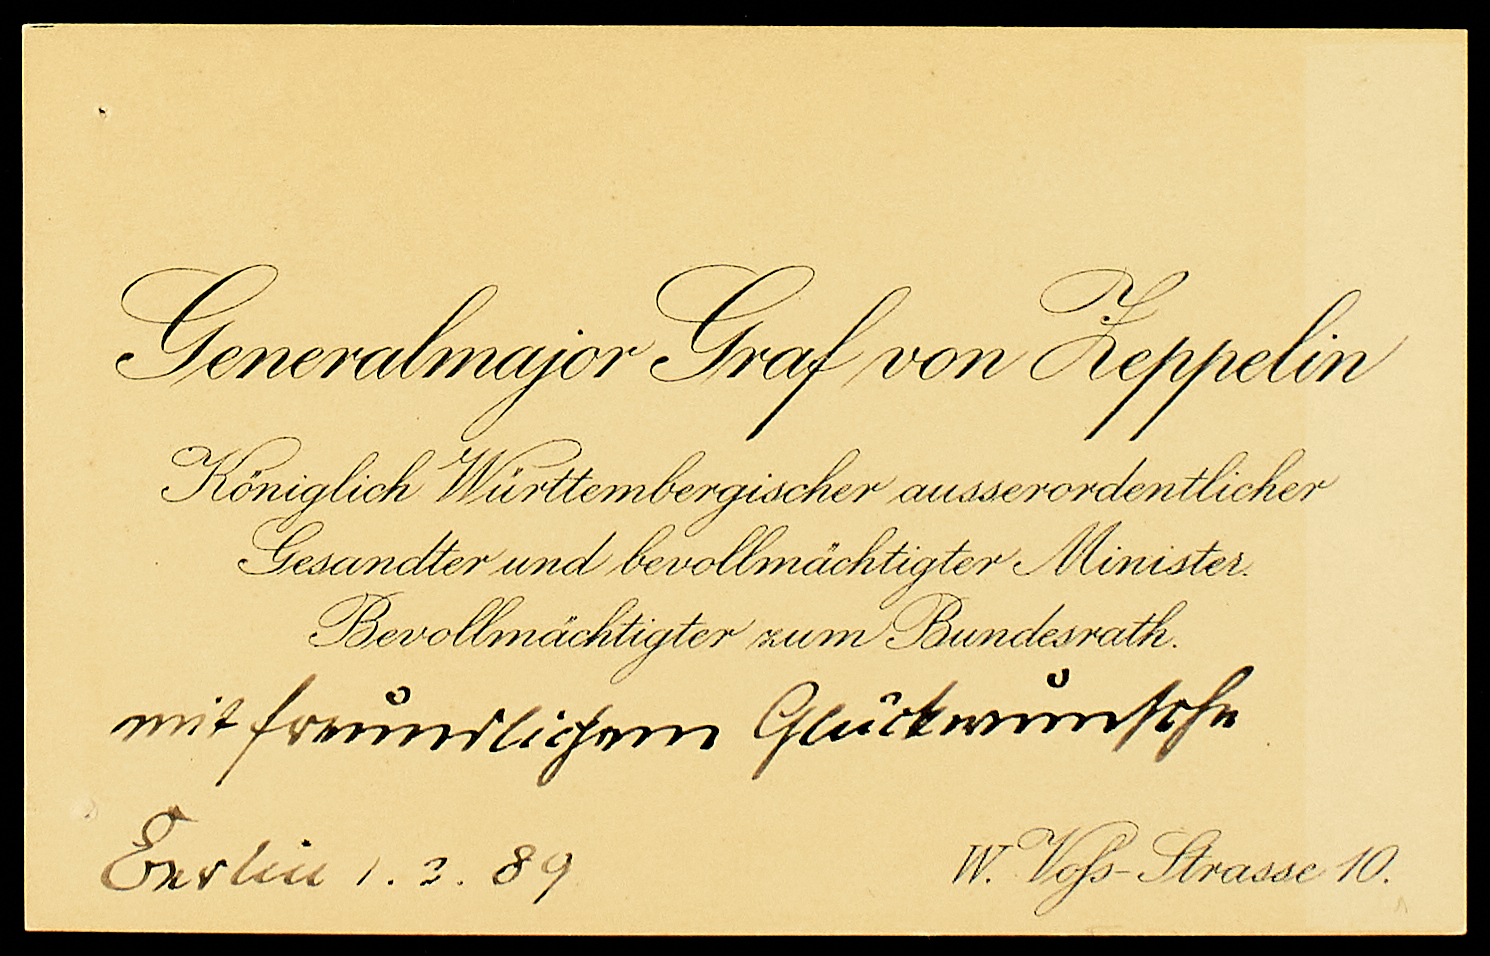 Generalmajor Graf von Zeppelin
Königlich Württembergischer ausserordentlicher
Gesandter und bevollmächtigter Minister.
Bevollmächtigter zum Bundesrath.
mit freundlichem Glückwunsche
Berlin 1. 3. 89
W. Voſs-Strasse 10.